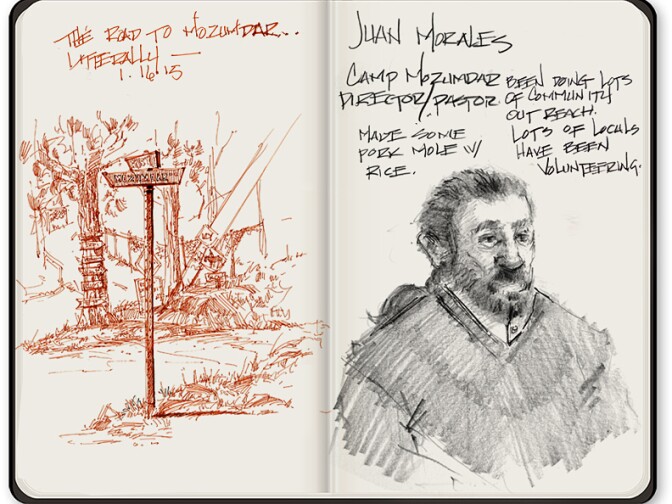 THE ROAD TO MOZUMDAR...
LITERALLY —
1.16.15
MOZUMDAR
JUAN MORALES
CAMP MOZUMDAR
DIRECTOR/PASTOR.
MADE SOME
PORK MOLE W/
RICE.
BEEN DOING LOTS
OF COMMUNITY
OUT REACH.
LOTS OF LOCALS
HAVE BEEN
VOLUNTEERING.